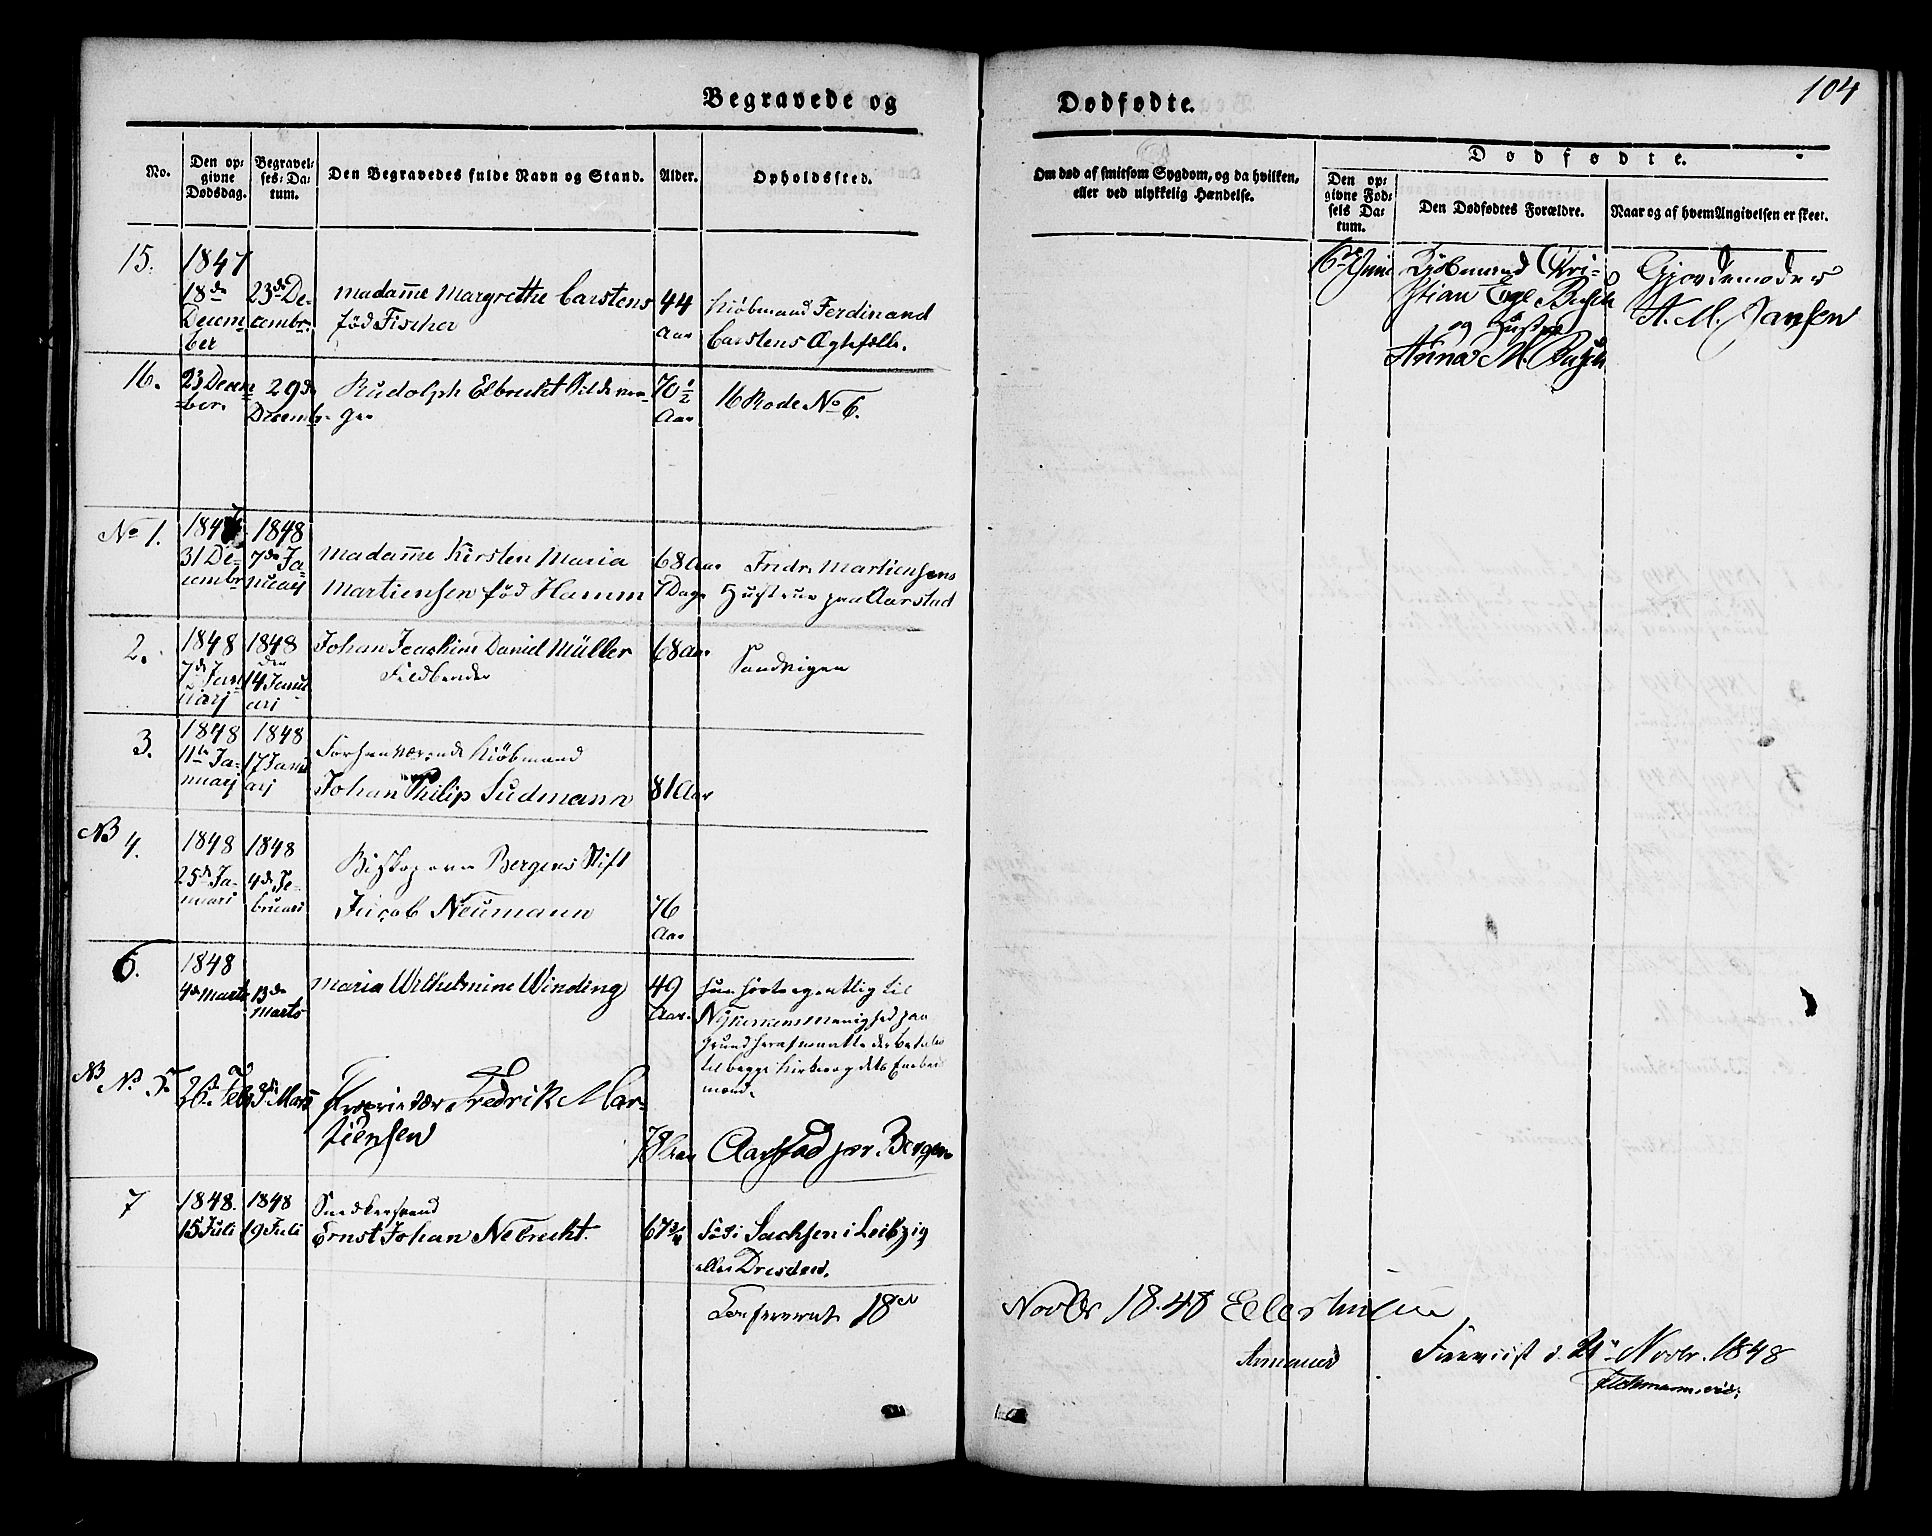 Begravede og
No.
Den op-
givne
Dødsdag.
Begravel-
ses-Da-
tum.
Den Begravedes fulde Navn og Stand.
Alder.
Opholdssted.
15.
1847
18de
Decem-
ber
23de De-
cembr.
Madame Margrethe Carstens
fød Fischer
44
Aar
Kiøbmand Ferdinand
Carstens Ægtefælle.
16.
23 Decem-
ber
29de
Decembr.
Rudolph Elbrecht
70 1/2
Aar
16 Rode No 6.
No 1.
1847
31 De-
cembr
1848
7de Ja-
nuarj
Madame Kirsten Maria
Martiensen fød Hamm
68 Aar
7 Dage
Fridr. Martiensens
Hustrue paa Aarstad
2.
1848
7de Jan-
uarj
1848
den
14 Janu-
arj
Johan Joachim David Müller
Feldbereder
68 Aar
Sandvigen
3.
1848
11te Ja-
nuarj
1848
17 Janu-
arj
Forhenværende Kiøbmand
Johan Philip Sudmann
81 Aar
NB 4.
1848
25de Ja-
nuari
1848
4de Fe-
bruari
Biskop over Bergens Stift
Jacob Neumann
76
Aar
6.
1848
4de Marts
13de
Marts
Maria Wilhelmine Winding
49
Aar.
hun hørte egentlig til
Nykirkens Menighed paa
Grund heraf maatte der betales
til begge Kirker og dets Embed
mænd.
NB No 5
26de Feb
3die Mars
Fredrik Mar-
tiensen
78 Aar
Aarstad per Bergen
7
1848.
15 Juli
1848
19 Juli
Snedkersvend
Ernst Johan Nebrecht.
67 3/4
Fød i Sachsen i Leibzig
eller Dresden.
Confereret 18de
Dødfødte.
104
Om død af smitsom Sygdom, og da hvilken,
eller ved ulykkelig Hændelse.
Dødfødte.
Den op-
givne Fød-
sels Da-
tum.
Den Dødfødtes Forældre.
Naar og af hvem Angivelsen er skeet.
6te Juni
Kjøbmand Chri-
stian
og Hustru
Anna M.
Gjordemoder
A. M. Jansen
Novbr 1848
Foreviist d. 21 Novbr. 1848